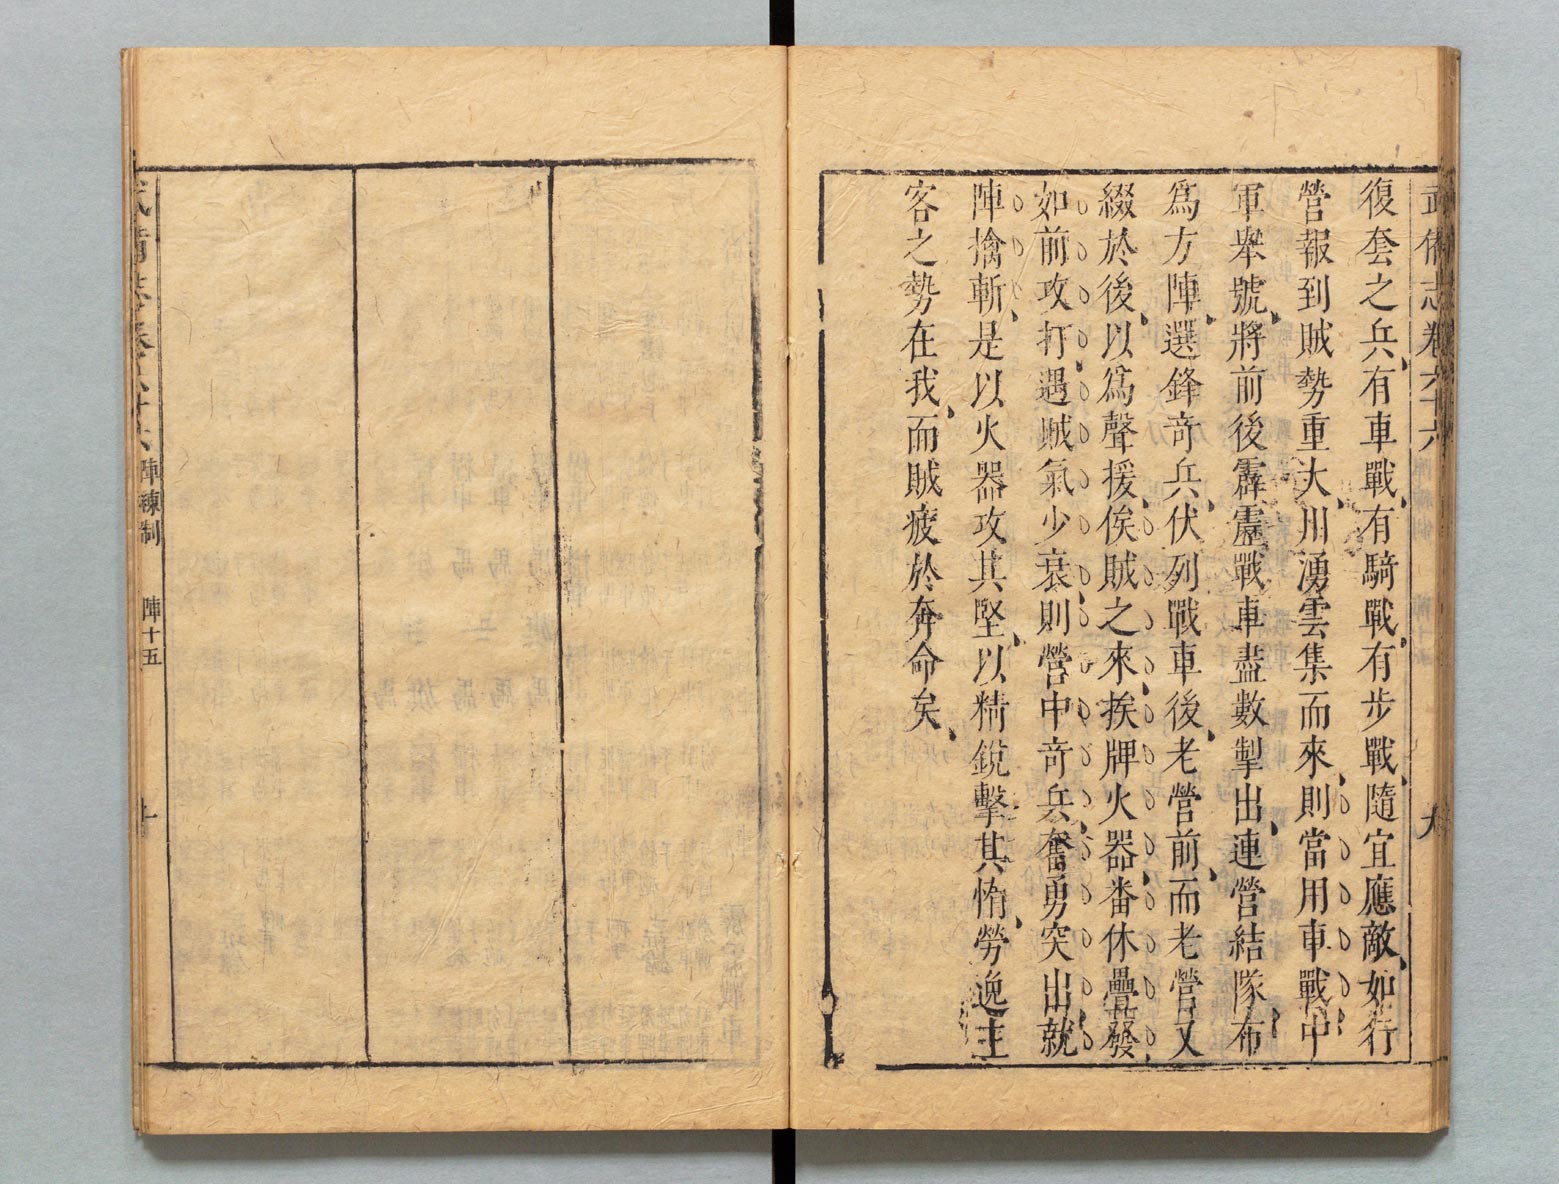 武備志卷六十六
九
復套之兵有車戰有騎戰有步戰隨宜應敵如行
營報到賊勢重大川湧雲集而來則當用車戰中
軍舉號將前後霹靂戰車盡數掣出連營結隊布
爲方陣選鋒奇兵伏列戰車後老營前而老營又
綴於後以爲聲援俟賊之來挨牌火器番休疊發
如前攻打遇賊氣少衰則營中奇兵奮勇突出就
陣擒斬是以火器攻其堅以精銳擊其惰勞逸主
客之勢在我而賊疲於奔命矣
武備志卷六十六
陣練制
陣十五
十